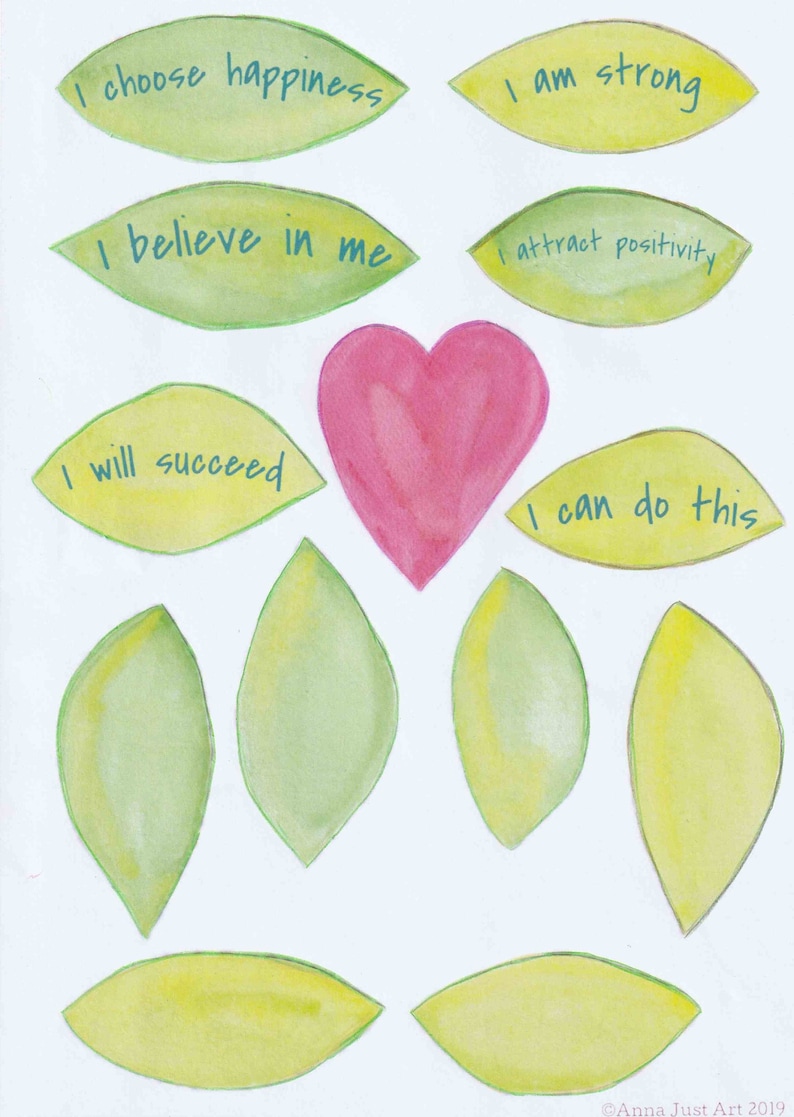 I choose happiness
I am strong
I believe in me
I attract positivity
I will succeed
I can do this
©Anna Just Art 2019